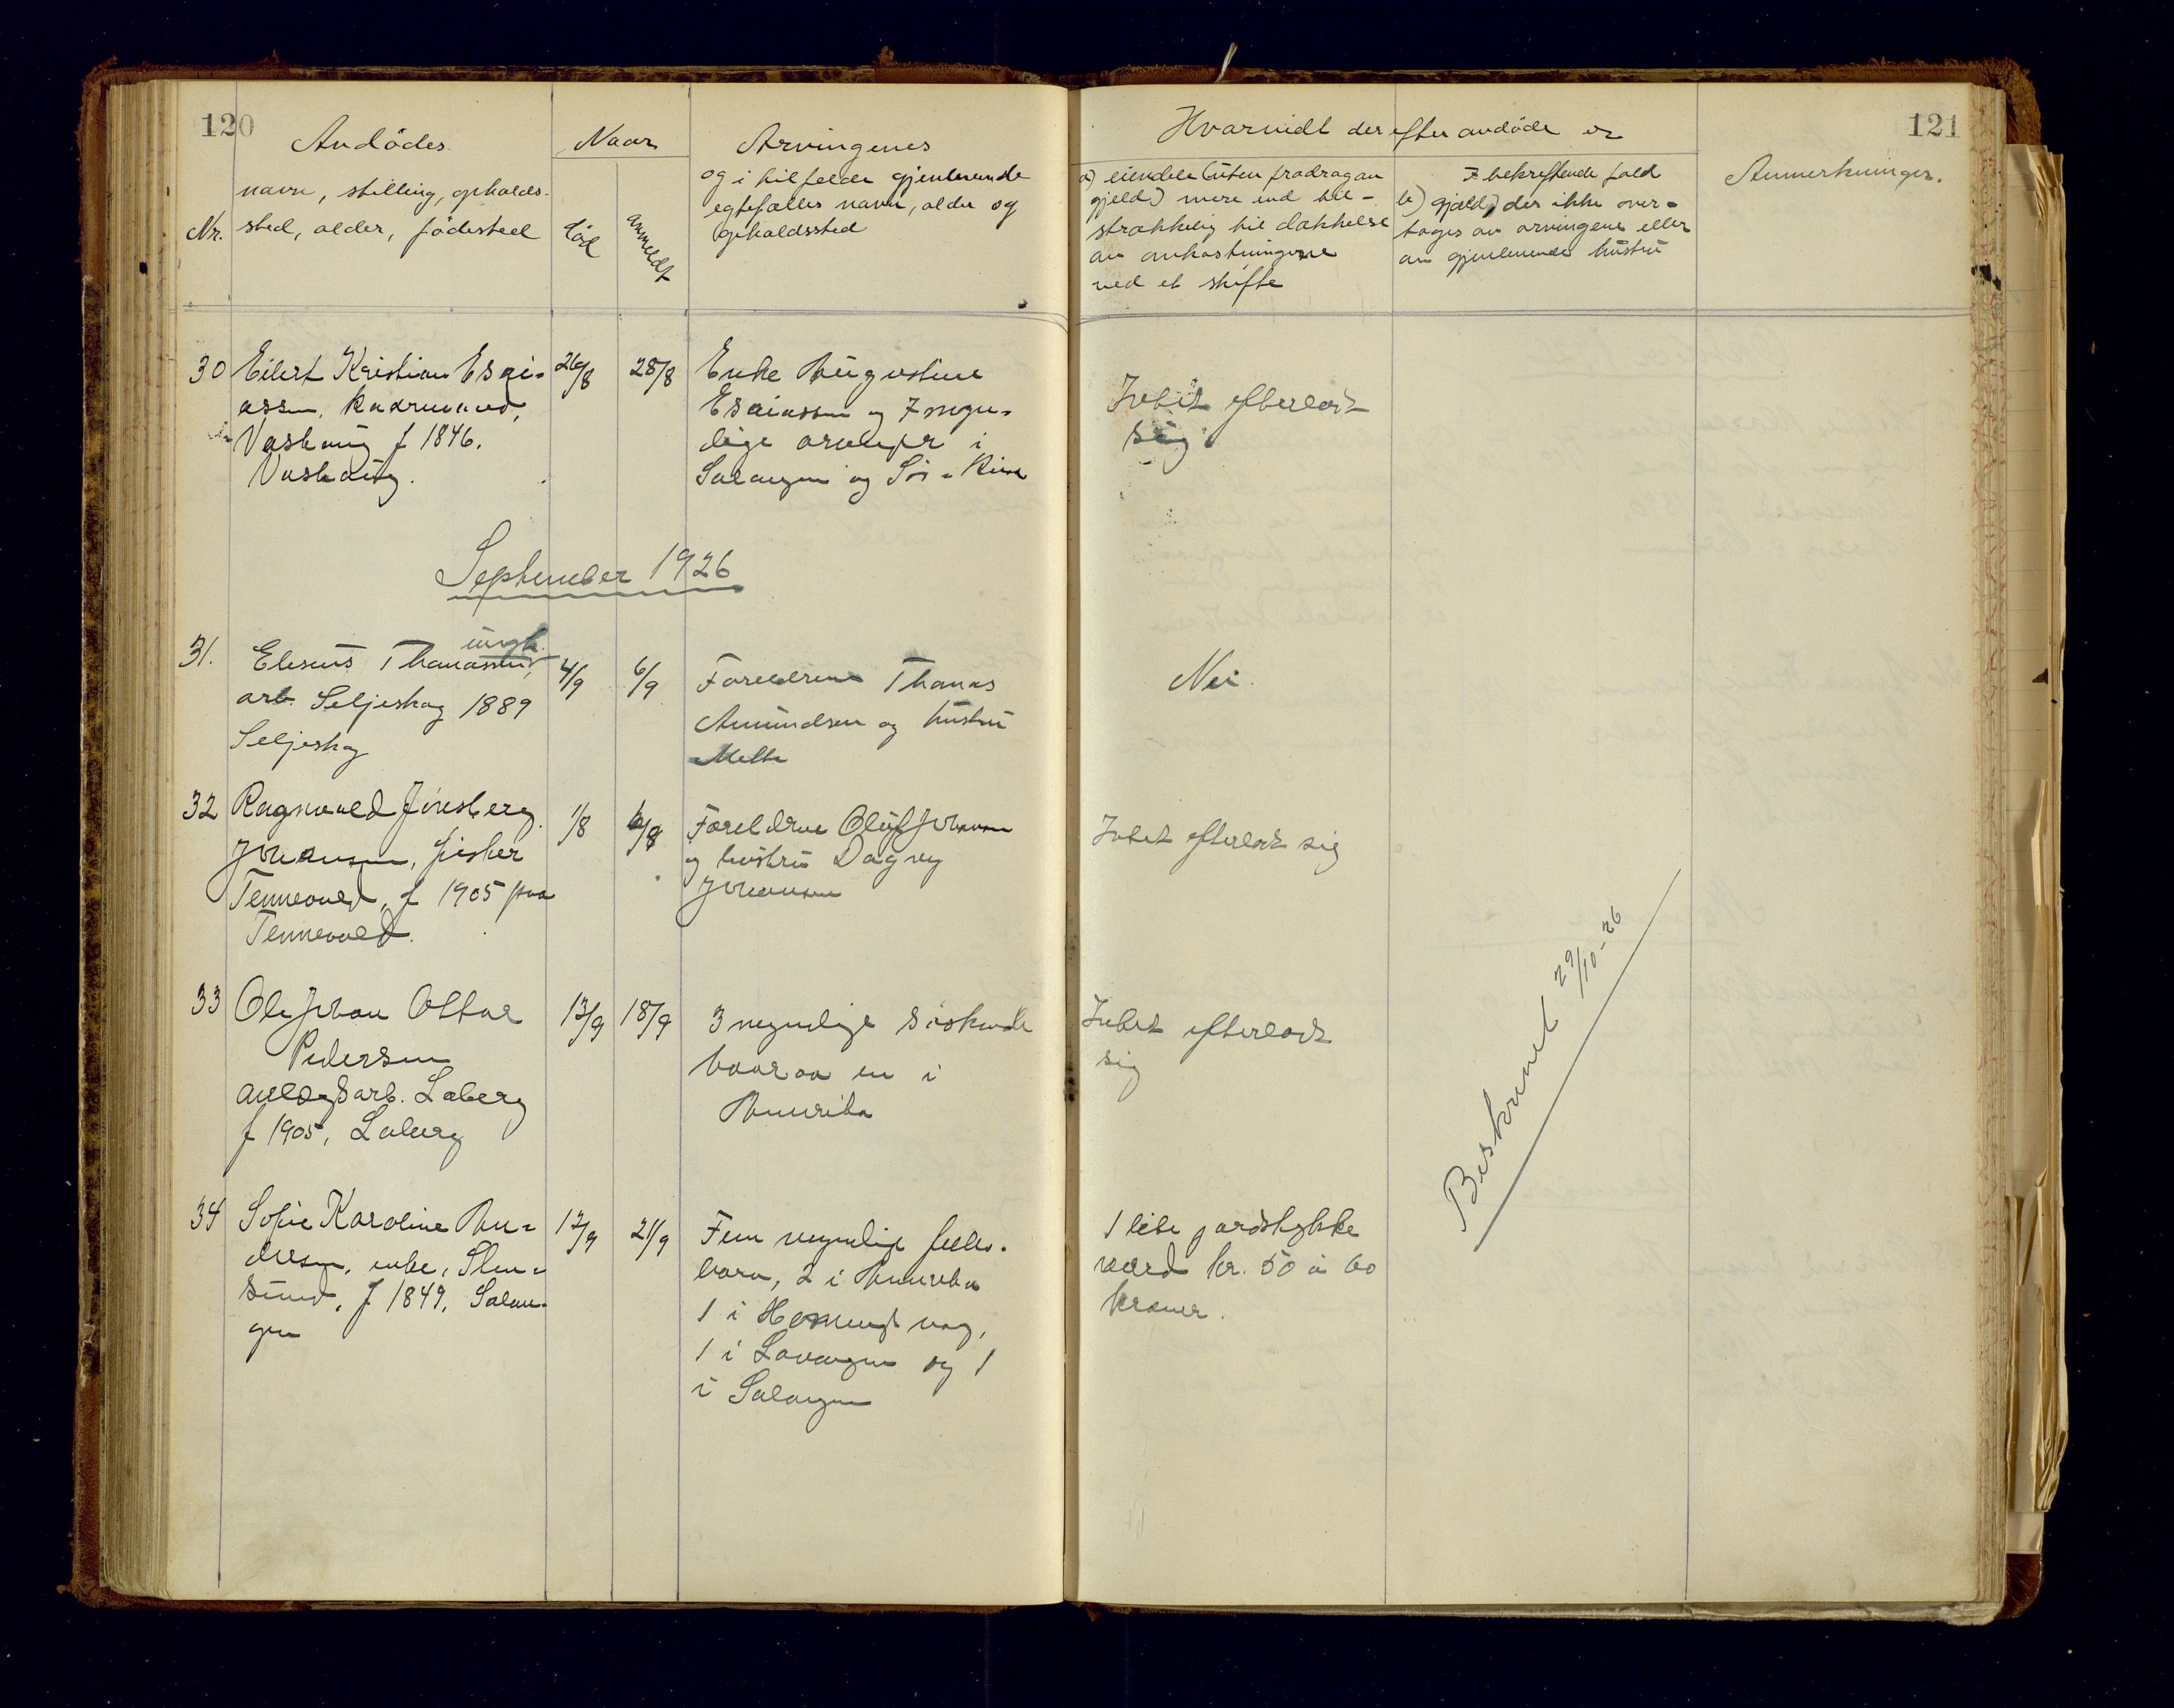 120
Avdödes
navn, stilling, opholds-
sted, alder, födested
Nr.
Naar
död
anmeldt
Arvingenes
og i tilfælde gjenlevende
egtefælles navn, alder og
opholdssted
30
Eilert Kristian Esai-
assen, kaarmand,
Vashaug f 1846.
Vashaug.
26/8
28/8
Enke Augustine
Esaiassen og 7 myn-
dige
i
Salangen og Sör-
September 1926
31.
ungk.
Elesæus Thomassen,
arb. Seljeskog 1889
Seljeskog
4/9
6/9
Foreldrene Thomas
Amundsen og hustru
Mette
32
Ragnvald Jinsberg
Johansen, fisker
Tennevold, f 1905 paa
Tennevold.
1/8
6/9
Foreldrene Oluf Johansen
og hustru Dagny
Johansen
33
Ole Johan Ottar
Pedersen
anlægsarb. Laberg
f 1905, Laberg
13/9
18/9
3 myndige söskende
hvorav en i
Amerika
34
Sofie Karoline An-
dersen, enke,
sund, f 1849, Salan-
gen
12/9
21/9
Fem myndige felles-
barn, 2 i Amerika
1 i Honningsvag,
1 i Lavangen og 1
i Salangen
121
Hvorvidt der efter avdöde er
a) eiendele (uten fradrag av
gjeld) mere end til-
strækkelig til dækkelse
av omkostningerne
ved et skifte
I bekreftende fald
b) gjæld, der ikke over-
tages av arvingene eller
av gjenlevende hustru
Anmerkninger.
Intet efterlot
sig
Nei.
Intet efterlot sig
Intet efterlot
sig
1 lite jordstykke
værd kr. 50 à 60
kroner.
Beskrevet 29/10-26